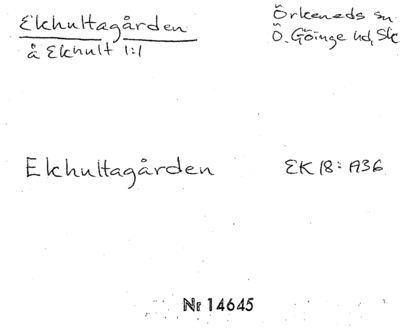 Ekhultagården
å Ekhult 1:1
Örkeneds sn
Ö. Göinge hd, Sk
Ekhultagården EK 18: A36
Nr 14645